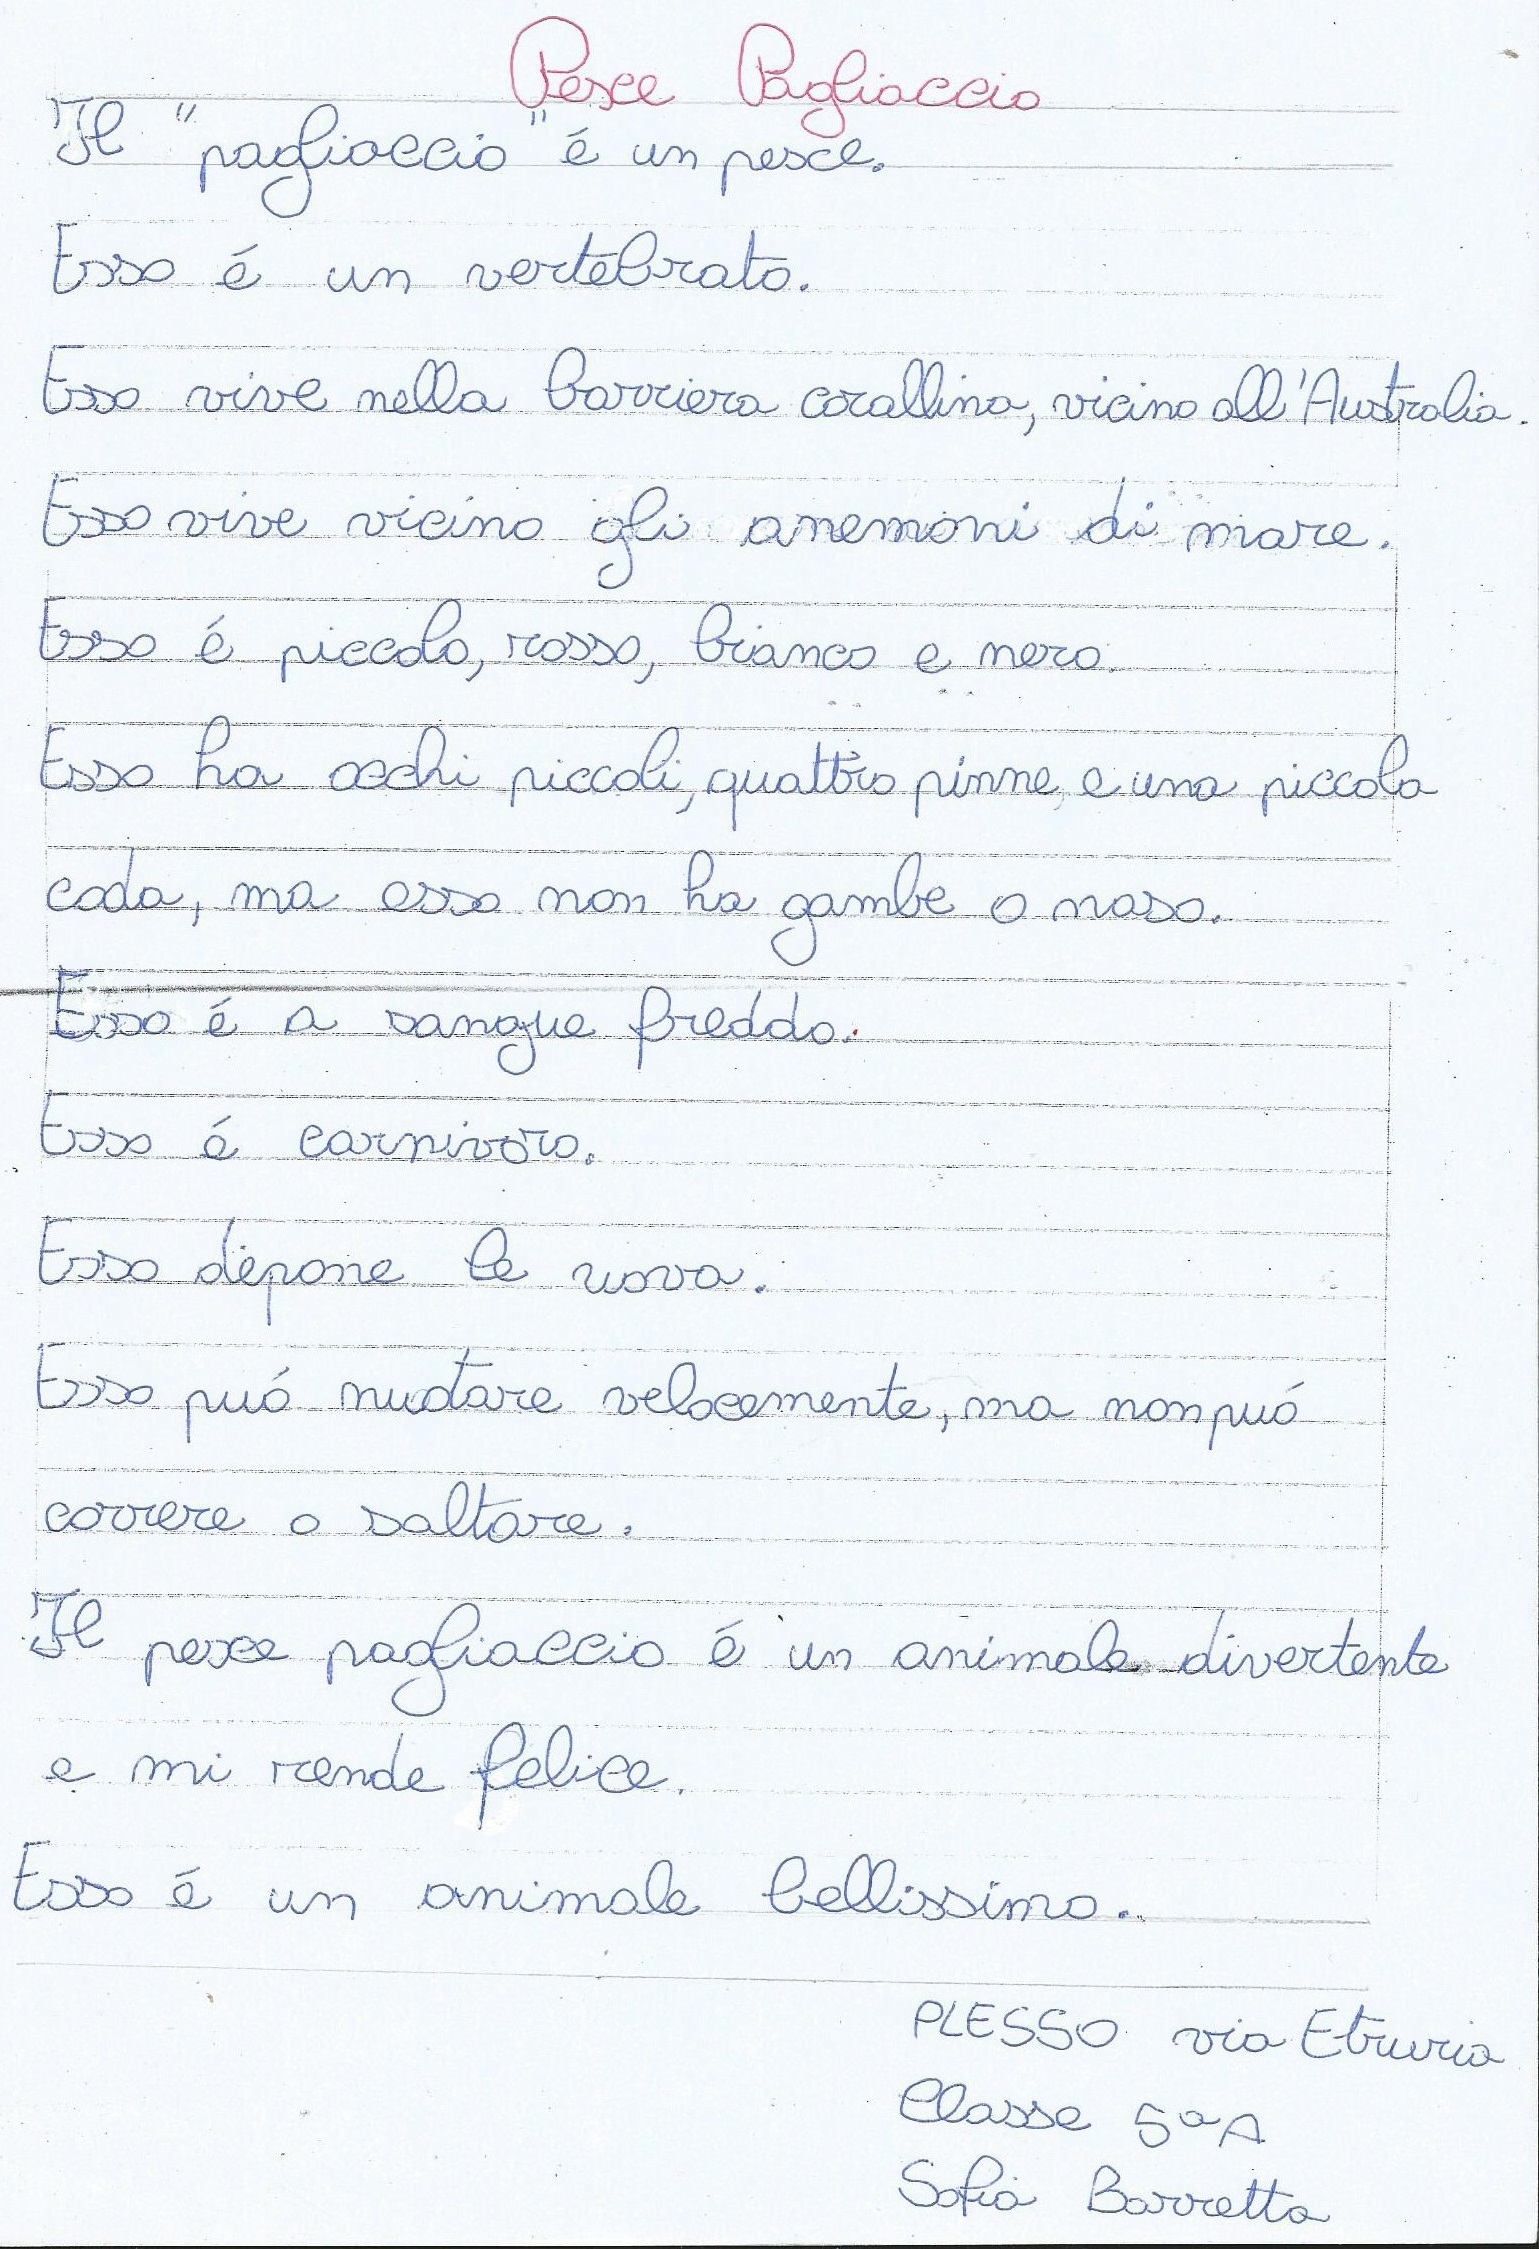 Pesce Pagliaccio
Il "pagliaccio" é un pesce.
Esso é un vertebrato.
Esso vive nella barriera corallina, vicino all'Australia.
Esso vive vicino gli anemoni di mare.
Esso é piccolo, rosso, bianco e nero.
Esso ha occhi piccoli, quattro pinne, e una piccola
coda, ma esso non ha gambe o naso.
Esso é a sangue freddo.
Esso é carnivoro.
Esso depone le uova.
Esso puó nuotare velocemente, ma non puó
correre o saltare.
Il pesce pagliaccio é un animale divertente
e mi rende felice.
Esso é un animale bellissimo.
PLESSO via Etruria
Classe 5ª A
Sofia Barretta